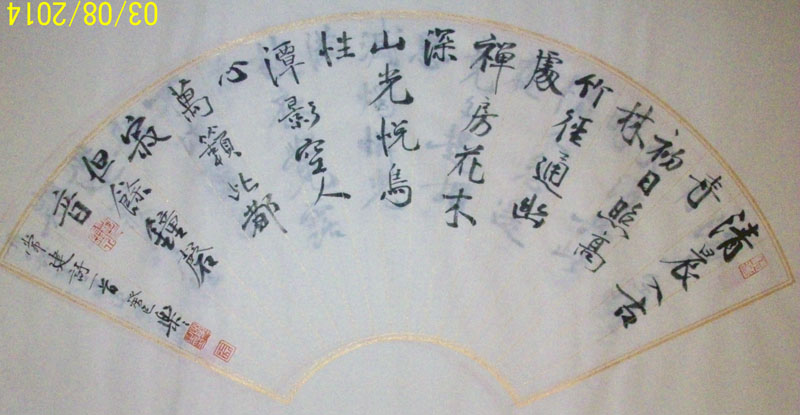 清晨入古
寺
初日照高
林
竹徑通幽
處
禪房花木
深
山光悦鳥
性
潭影空人
心
萬籟此都
寂
但餘鐘磬
音
常建詩一首 癸巳
03/08/2014